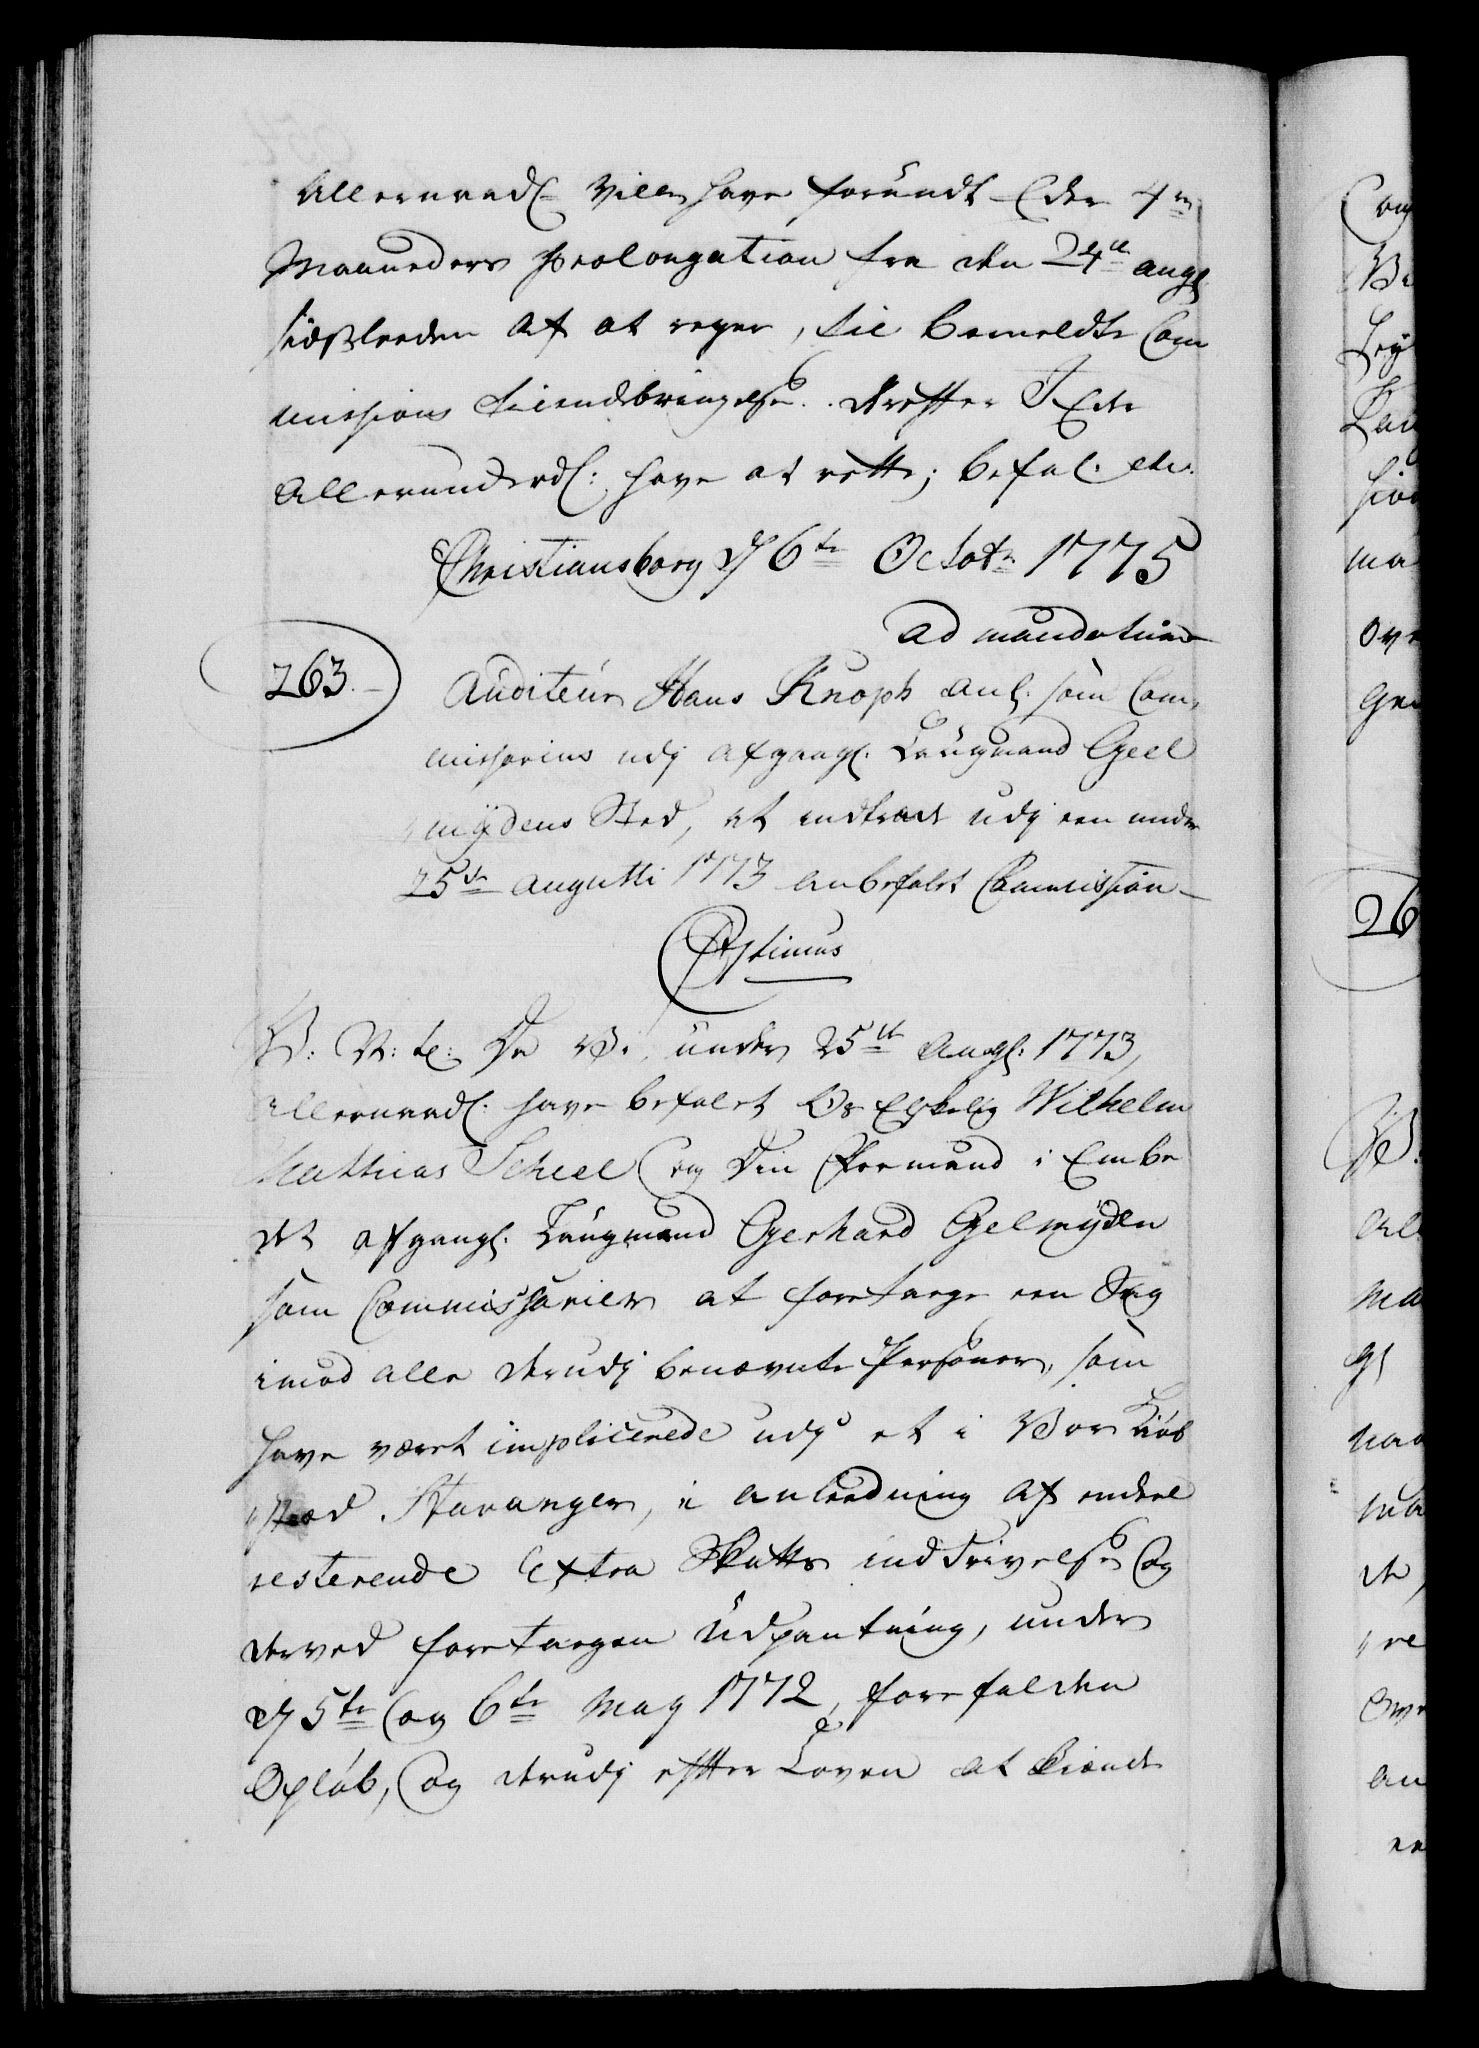 Allernaadl: Ville have forundt Eder 4re
Maaneders Prolongation fra den 24de Augl
sidstleeden af at regne, til bemeldte Com
missions tilendebringelse. Derefter I Eder
Allerunderdl: have at rette; befal. etc.
Christiansborg d 6te Octobr 1775
ad mandatum
263. Auditeur Hans Knoph anl. som Com-
missarius udj afgangl. Laugmand Geel
mÿdens Sted, at indtræde udj een under
25de Augusti 1773 anbefalet Commission
Septimus
V: N: tl: Da Vi under 25de Augl: 1773,
Allernaadl: have befalet Os Elskelig Wilhelm
Mathias Scheel Og Din Formand i Embe
det afgangl. Laugmand Gerhard Gelmÿden
som Commissarier at foretage een Sag
imod alle derudj benævnte Personer, som
have været implicerede udj et i Vor Kiøb
stæd Stavanger, i anleedning af endeel
resterende Extra Skatts inddrivelse Og
derved foretagen Udpantning, under
d 5te Og 6te May 1772, forefalden
Opløb, Og derudj efter Loven at kiende